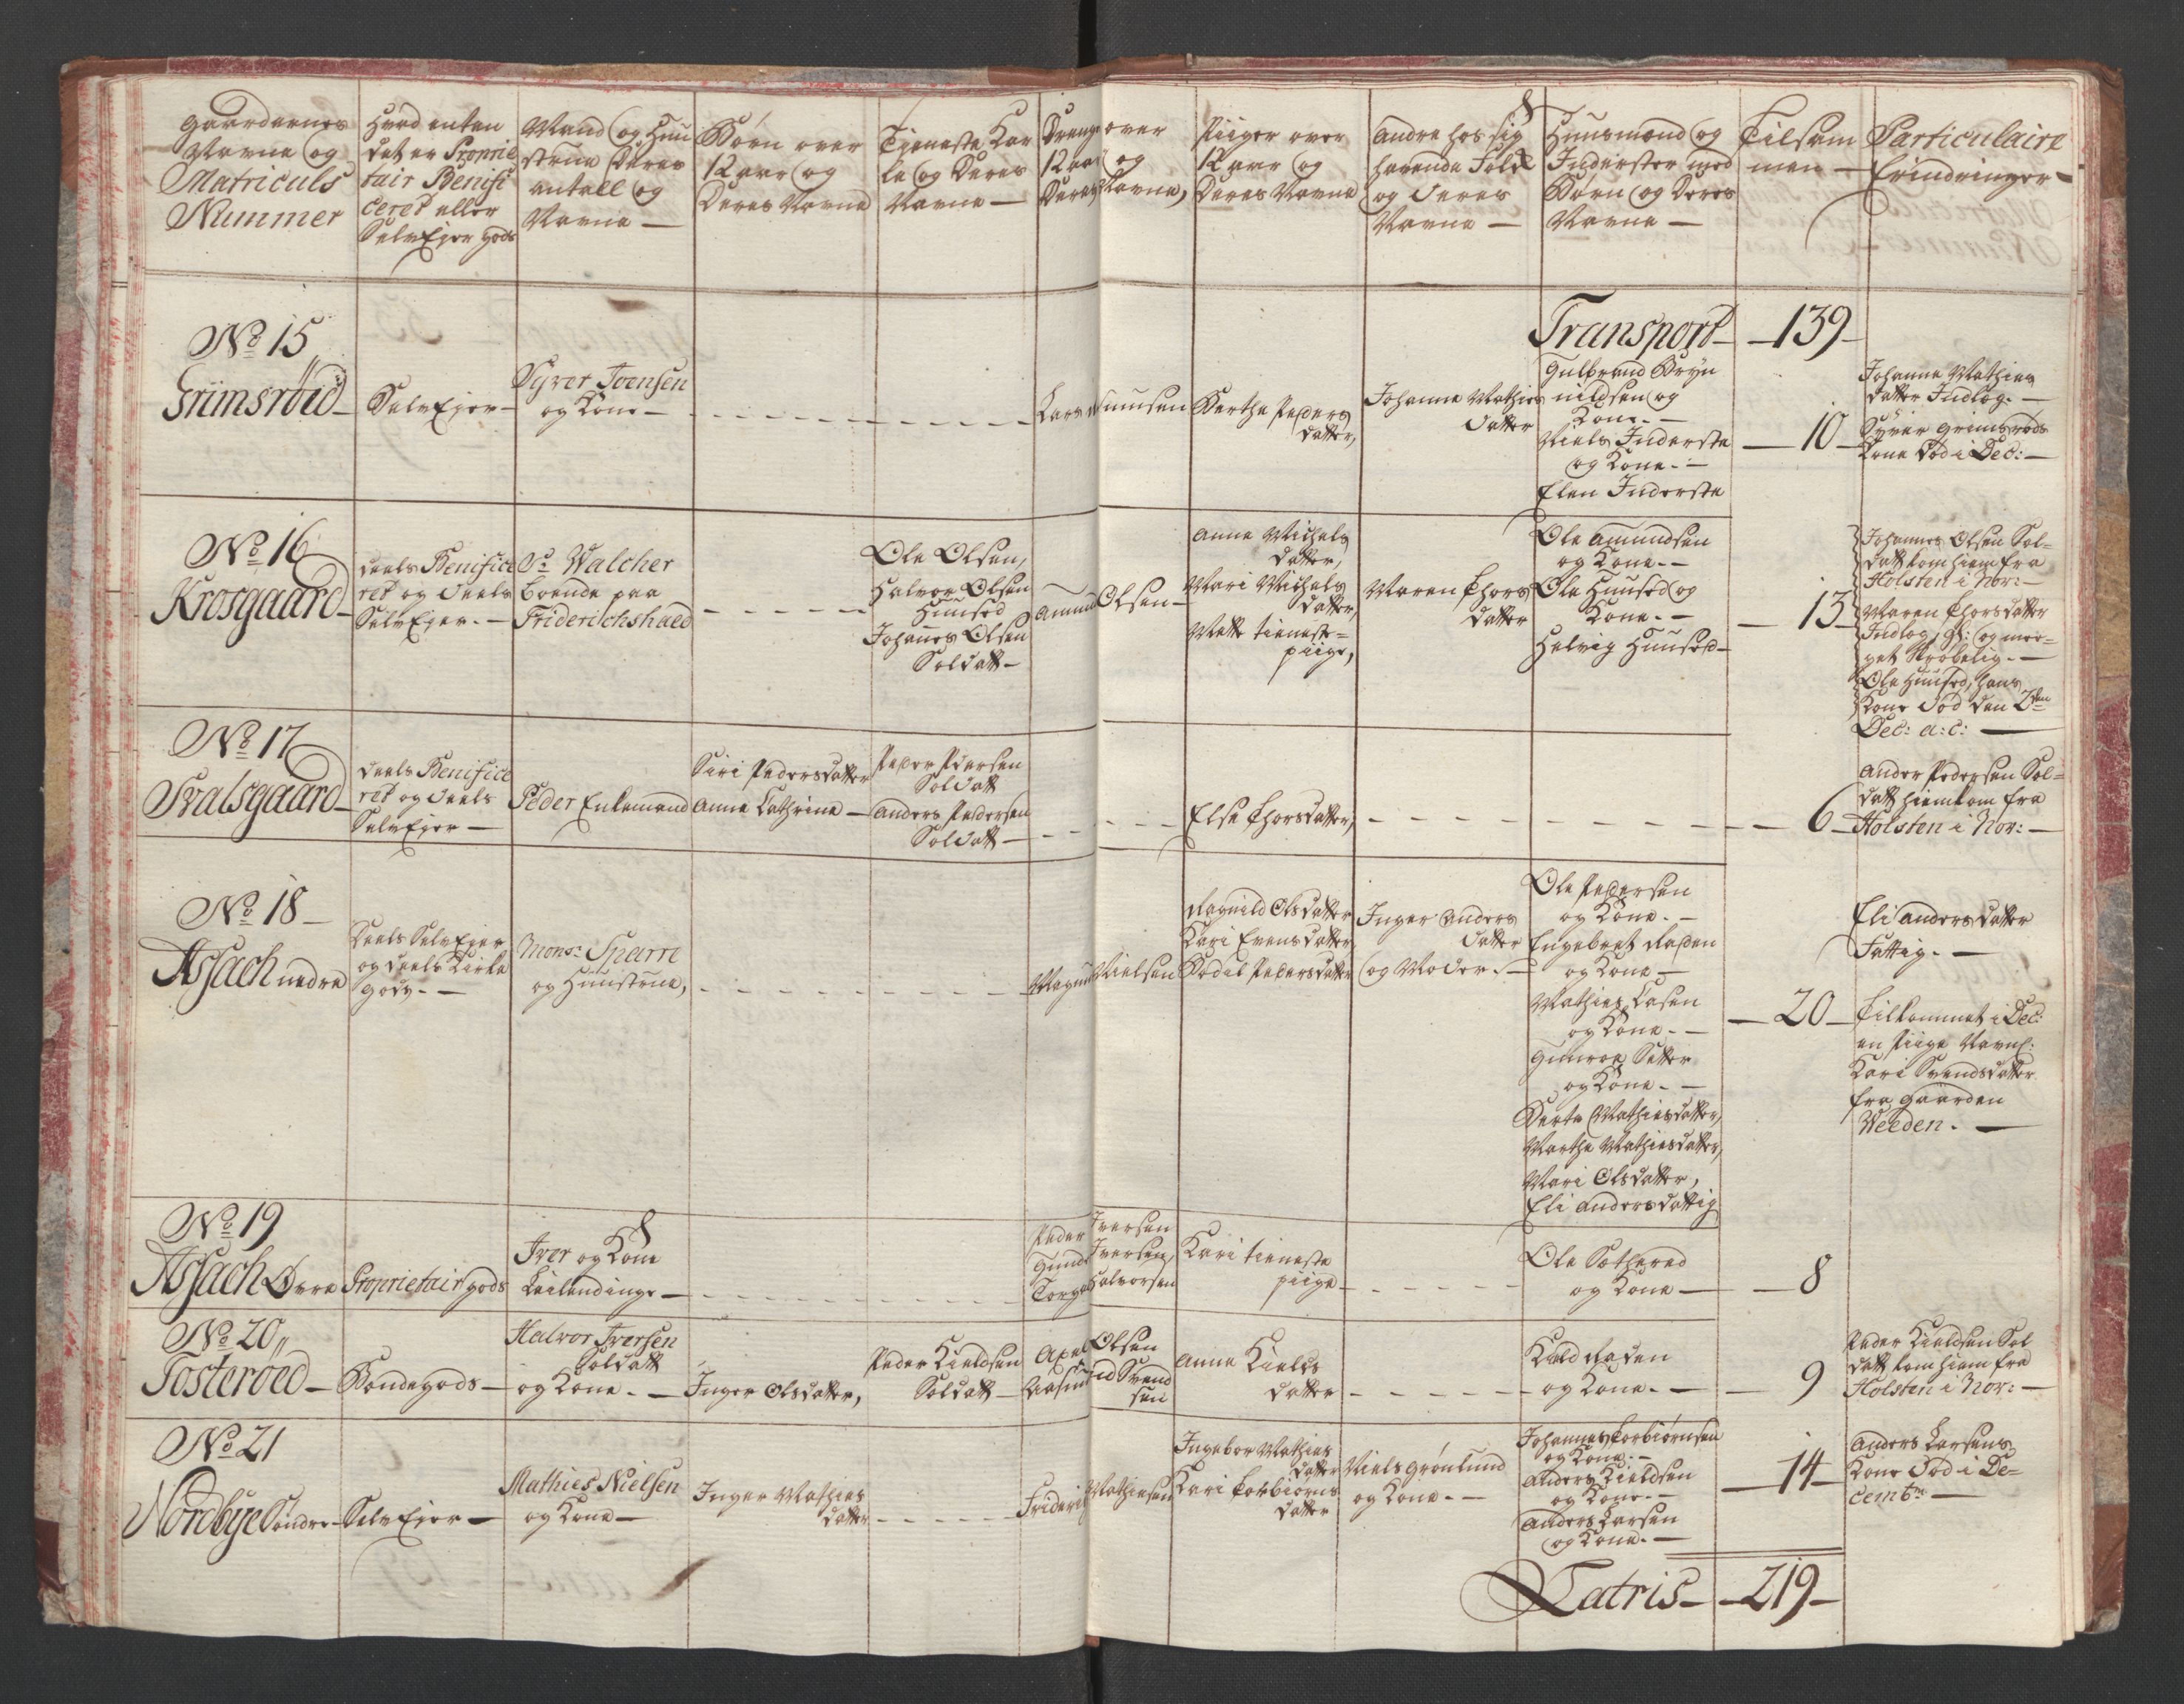 Gaardernes
Navne og
Matriculs
Nummer
Hvad enten
det er Proprie
tair Benifi
ceret eller
SelvEjer gods
Mand og Huu
strue Deres
antall og
Navne —
Børn over
12 aar og
Deres Navne
Tjeneste Kar
le og Deres
Navne —
Drenge over
12 aar og
Deres Navne,
Piiger over
12 aar og
Deres Navne
Andre hos sig
havende Folk
og Deres
Navne —
Huusmænd og
Inderster med
Børn og Deres
Navne —
Tilsam
men —
Particulaire
Erindringer —
Transport — 139 —
No 15
Grimsröed —
SelvEjer —
Syver Joensen
og Kone —
Lars
Berthe Peders
datter,
Johanne Mathies
datter
Gulbrand Bryn
nildsen og
Kone. —
Niels Inderste
og Kone. —
Elen Inderste
— 10 —
Johanne Mathies
datter Indlog. —
Syver Grimsröds
Kone Död i Dec: —
No 16
Krosgaard —
deels Benifice
ret og deels
SelvEjer. —
Sr Walcher
boende paa
Friderichshald
Ole Olsen,
Halvor Olsen
Huused
Johanes Olsen
Soldatt —
Amund Olsen —
Anne Michels
datter,
Mari Michels
datter,
Mette tieneste-
piige,
Maren Thors
datter
Ole Amundsen
og Kone. —
Ole Huused og
Kone. —
Helvig Huused —
— 13 —
Johannes Olsen Sol-
datt kom hiem fra
Holsten i Nov: —
Maren Thorsdatter
Indlog, gl: og me-
get skröbelig. —
Ole Huused, hans
Kone Död den 2den
Dec: a: c: —
No 17
Svalsgaard —
deels Benifice
ret og deels
SelvEjer —
Peder Enkemand
Siri Pedersdatter
Anne Cathrine —
Peder Pedersen
Soldatt
Anders Pedersen
Soldatt —
Else Thorsdatter,
— 6 —
Ander Pedersen Sol-
datt hiemkom fra
Holsten i Nov: —
No 18 —
Asach nedre
Deels SelvEjer
og deels Kirke
gods. —
Monsr Sparre
og Huustrue,
Magnus Nielsen
Ragnild Olsdatter
Kari Evensdatter
Bodil Pedersdatter
Inger Anders
datter
og Moder. —
Ole Pedersen
og Kone. —
Engebret Raden
og Kone —
Mathies Casen
og Kone. —
Gunroe Setter
og Kone. —
Berte Mathiesdatter,
Marthe Mathiesdatter,
Mari Olsdatter,
Eli Anders dattig
— 20 —
Eli Anders datter
Fattig. —
Tilkommet i Dec:
en Piige Navnl:
Kari Svendsdatter
fra Gaarden
Weeden. —
No 19
Asach Övre
Proprietair gods
Iver og Kone
Leilendinge —
Peder Iversen
Gunder Iversen,
Torger Halvorsen
Kari tieneste
piige —
Ole Sætherød
og Kone —
— 8
No 20
Tosteröed —
Bondegods —
Halvor Iversen
Soldatt
og Kone. —
Inger Olsdatter,
Peder Kieldsen
Soldatt —
Axel Olsen
Aasmund Svend
sen
Anne Kields
datter
Kield Raden
og Kone. —
— 9
Peder Kieldsen Sol
datt kom hiem fra
Holsten i Nov: —
No 21
Nordbye Söndre —
SelvEjer —
Mathies Nielsen
og Kone —
Inger Mathies
datter
Friderich Mathiesen
Ingebor Mathies
datter
Kari Torbiörns
datter
Niels Grönlund
og Kone. —
Johannes Torbiörnsen
og Kone. —
Anders Kieldsen
og Kone. —
Anders Larsen
og Kone. —
— 14 —
Anders Larsens
Kone Död i De-
cembr —
Latris — 219 —